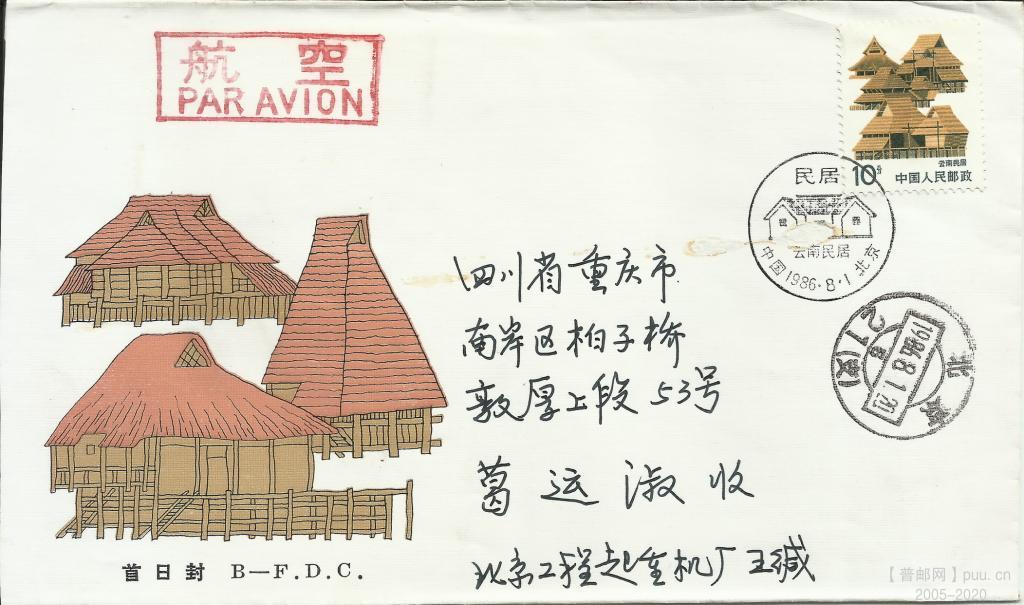 航空
PAR AVION
云南民居
10分 中国人民邮政
民居
云南民居
中国1986·8·1北京
四川省重庆市
南岸区柏子桥
敦厚上段53号
葛运淑收
北京工程起重机厂王缄
北京
1986.8.1
21(支)
首日封 B—F.D.C.
【普邮网】puu.cn
2005-2020